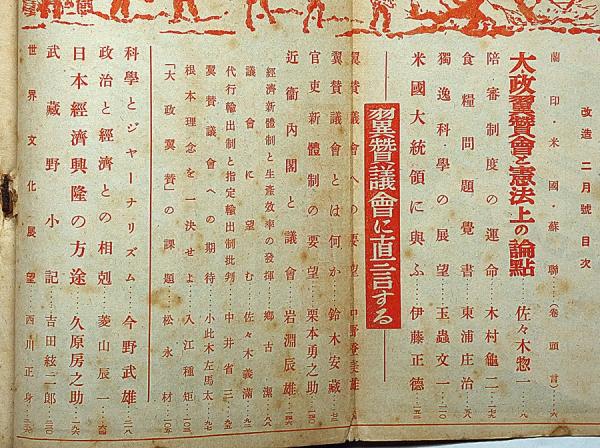 改造二月號目次
蘭印・米國・蘇聯…(卷頭言)…六
大政翼贊會と憲法上の論點 佐々木惣一…八
陪審制度の運命 木村龜二…二九
食糧問題覺書 東浦庄治…
獨逸科學の展望 玉蟲文一…
米國大統領に與ふ 伊藤正德…
翼贊議會に直言する
翼贊議會への要望 中野登美雄…
翼贊議會とは何か 鈴木安藏…
官吏新體制の要望 栗本勇之助…
近衞內閣と議會 岩淵辰雄…
經濟新體制と生產效率の發揮 鄕古潔…
議會に望む 佐々木義滿…
代行輸出制と指定輸出制批判 中井省三…
翼贊議會への期待 小此木左馬太…
根本理念を一決せよ 入江種矩…
「大政翼贊」の課題 松永材…
科學とジャーナリズム 今野武雄…
政治と經濟との相剋 菱山辰一…
日本經濟興隆の方途 久原房之助…
武藏野小記 吉田絃二郎…
世界文化展望 西川正身…